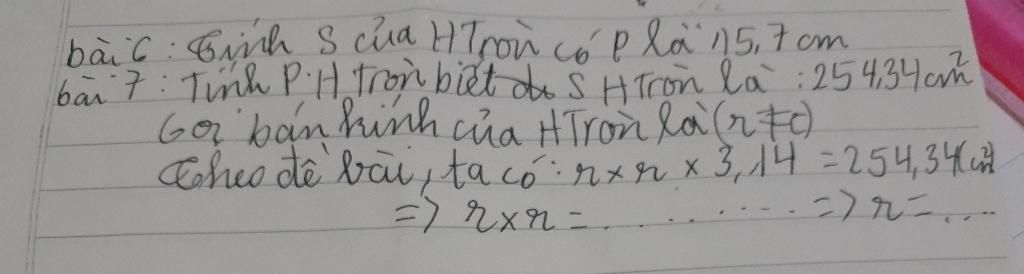 bài 6: Tính S của HTròn có P là 15,7 cm
bài 7: Tính P.H tròn biết S HTròn là: 254,34 cm²
Gọi bán kính của HTròn là (r ≠ 0)
Theo đề bài, ta có: r x r x 3,14 = 254,34 (cm²)
=> r x r = .......... => r = ....